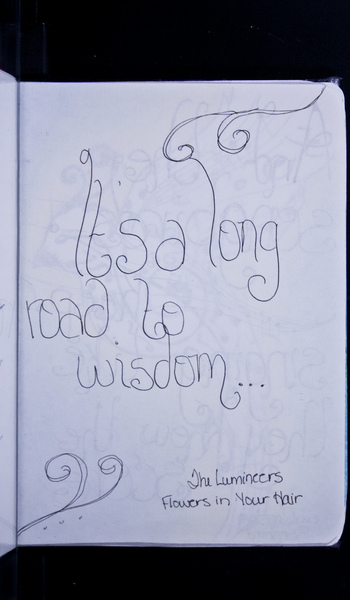 It's a long
road to
wisdom...
The Lumineers
Flowers in Your Hair